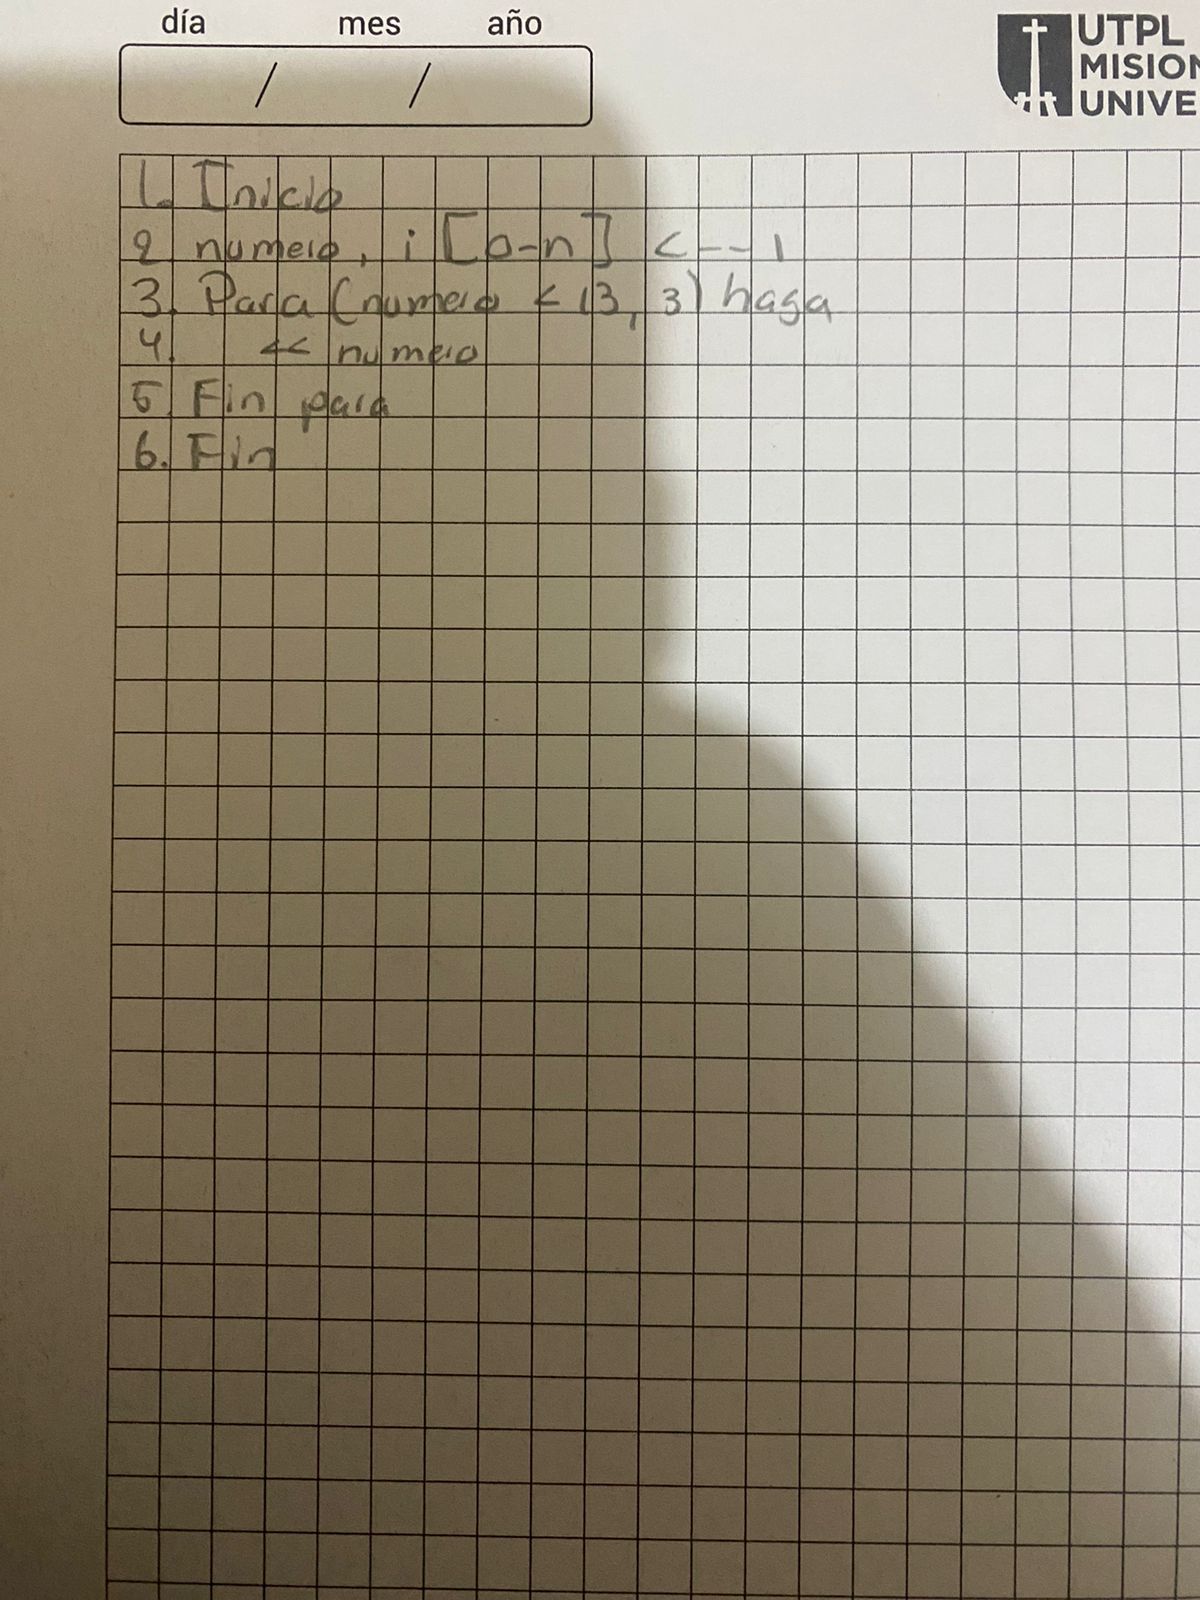 día mes año
/ /
UTPL
MISION
UNIVE
1. Inicio
2 numero, i [0-n] <--1
3. Para (numero < 13, 3) haga
4. << numero
5. Fin para
6. Fin